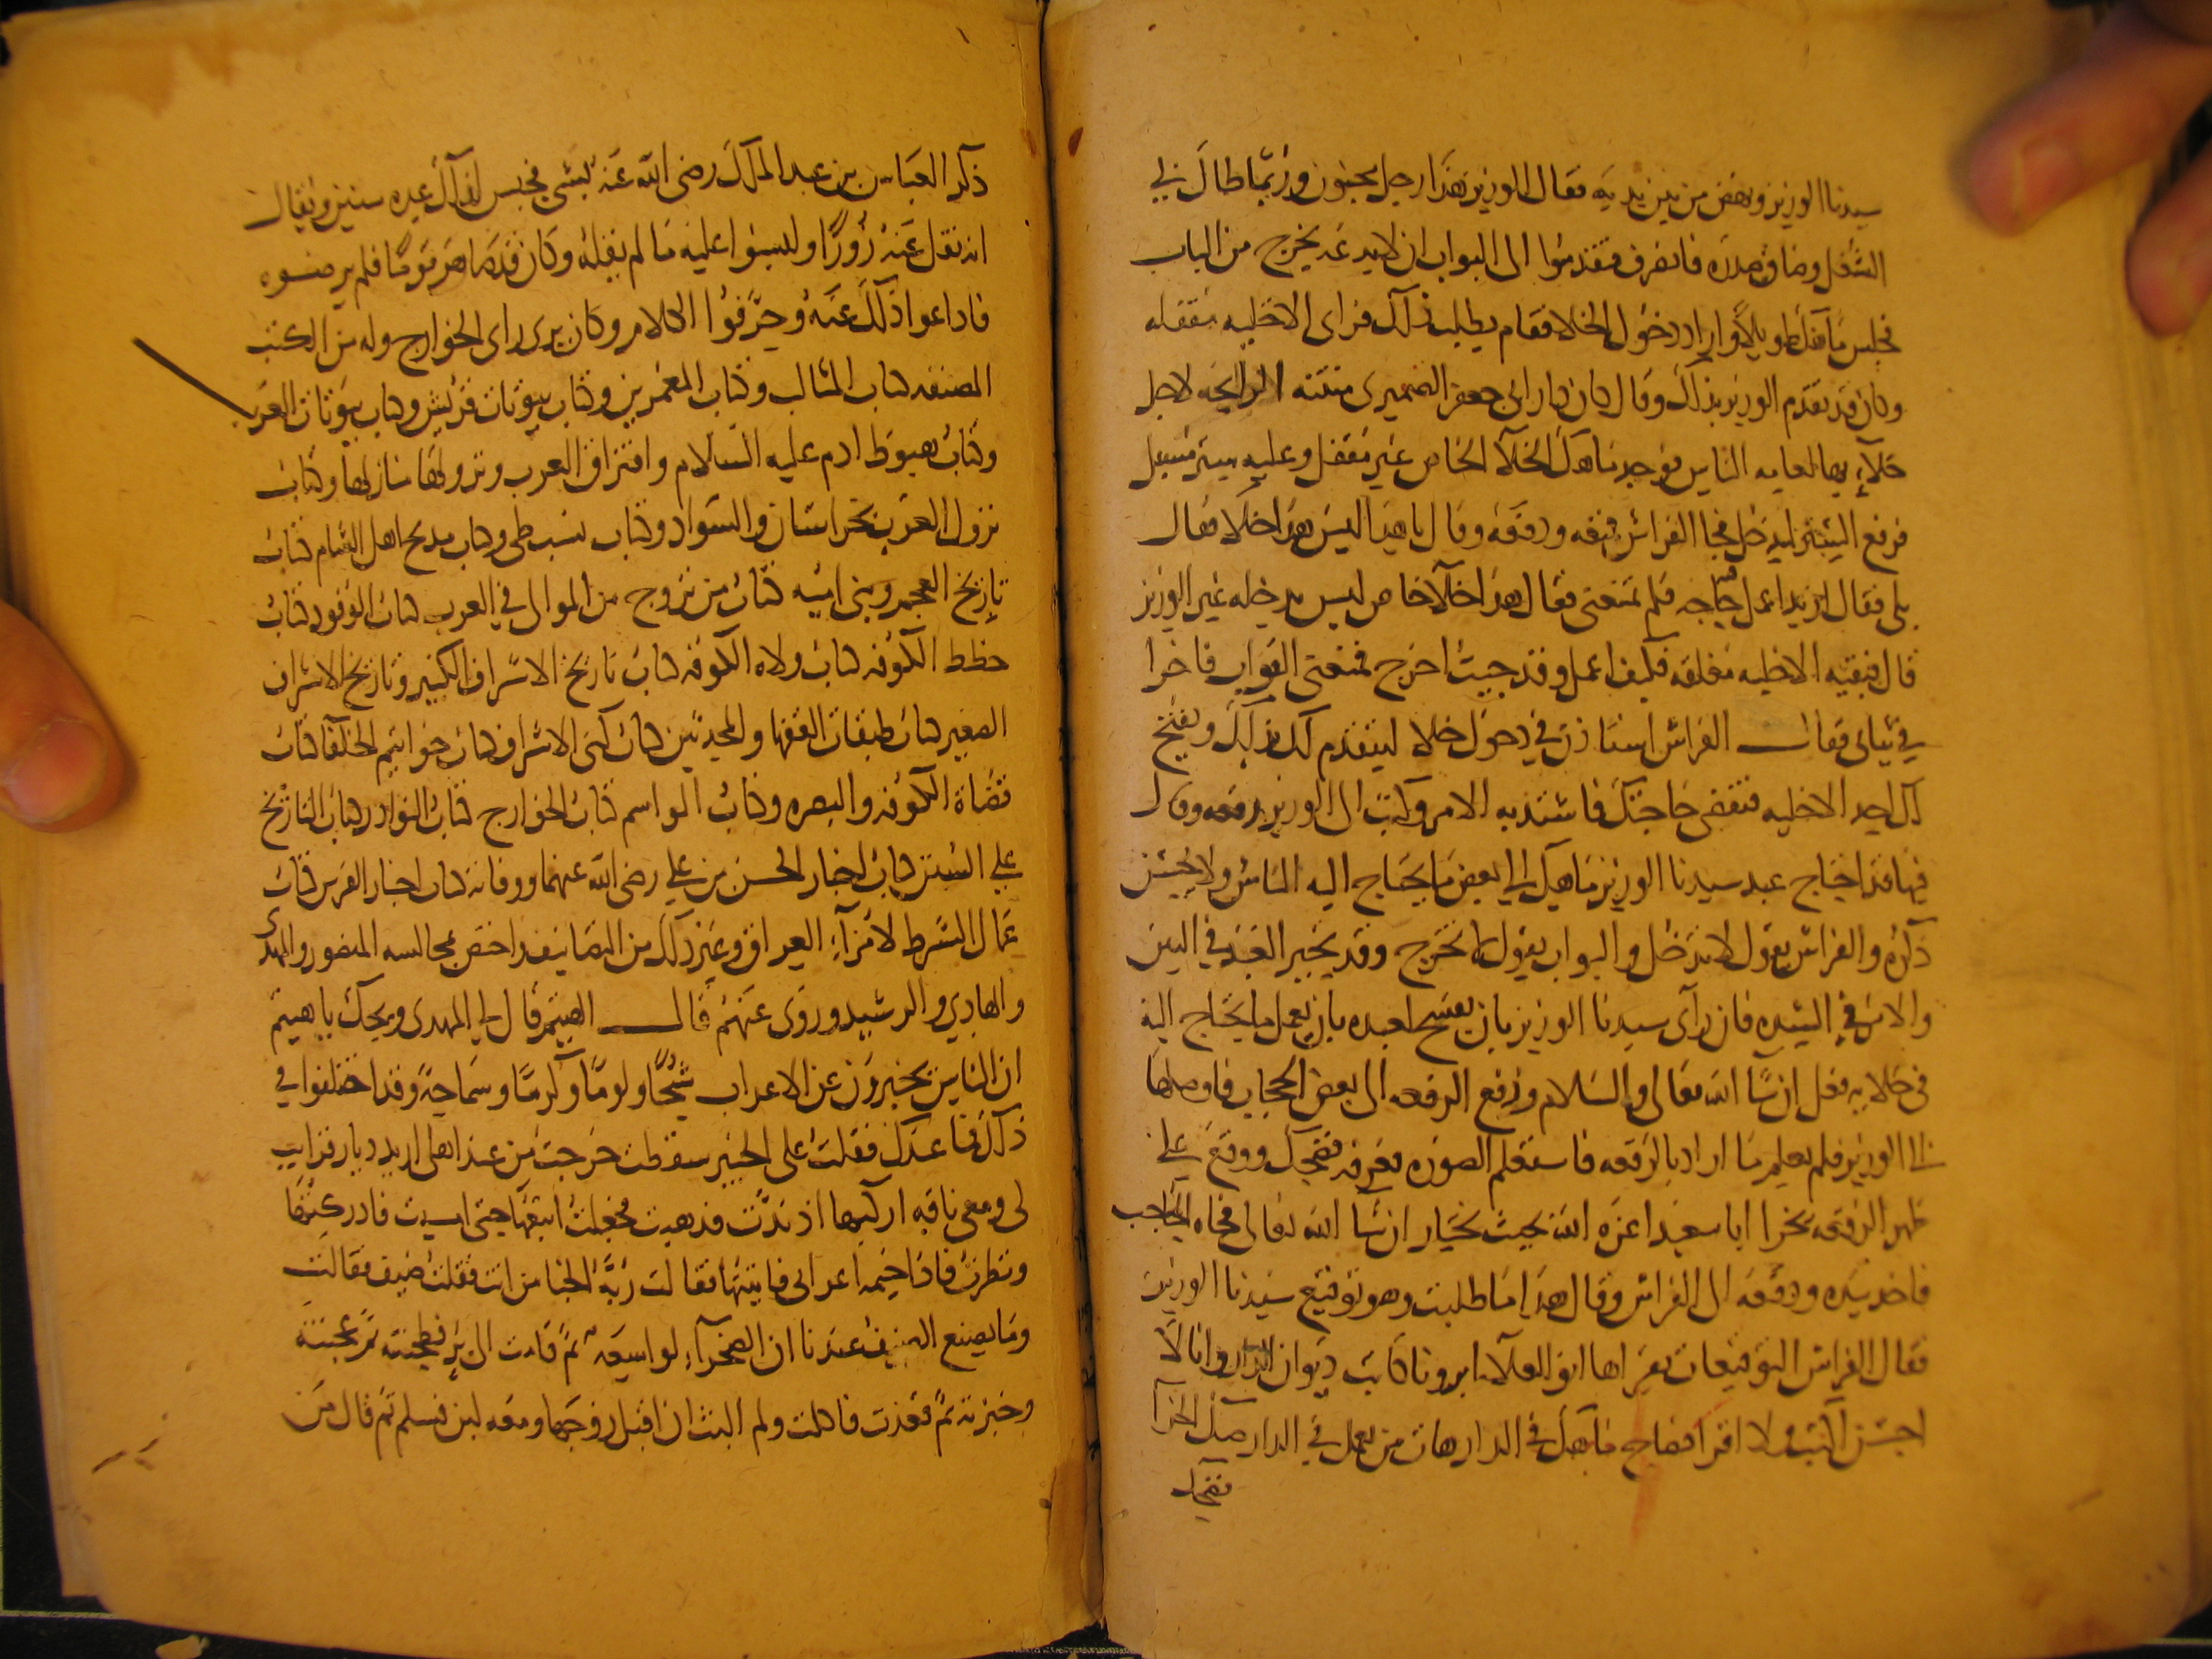 سيدنا الوزير ونهض من بين يديه فقال الوزير هذا رجل مجنون وربما طال بي
الشغل وضاق صدره فانصرف فتقدموا الى البواب ان لا يدعه يخرج من الباب
فجلس طويلا واراد دخول الخلا فقام يطلب ذلك فراى الاخليه مقفله
وكان قد تقدم الوزير بذلك وقال كان دار ابى جعفر الضميرى منتنه الرايحه لاجل
خلاء بها لعامه الناس فوجد هناك الخلآ الخاص غير مقفل وعليه ستر مسبل
فرفع الستر ليدخل فجا الفراش فمنعه ودفعه وقال يا هذا اليس هذا خلا فقال
بلى فقال اريد اعمل حاجه فلم تمنعنى فقال هذا خلآ خاص ليس يدخله غير الوزير
قال فبقيه الاخليه مغلقه فكيف اعمل وقد جيت اخرج فمنعنى البواب فاخرا
في ثيابى فقال الفراش استاذن في دخول خلا ليتقدم لك بذلك ويفتح
لك احد الاخليه فتقضى حاجتك فاشتد به الامر وكتب الى الوزير رقعه وقال
فيها قد احتاج عبد سيدنا الوزير الى بعض ما يحتاج اليه الناس ولا يحسن
ذكره والفراش يقول لا تدخل والبواب يقول لا تخرج وقد تحير العبد في البين
والامر في الشده فان رآى سيدنا الوزير بان يفسح لعبده بان يعمل ما يحتاج اليه
في خلايه فعل ان شا الله تعالى والسلام ودفع الرقعه الى بعض الحجاب فاوصلها
الى الوزير فلم يعلم ما اراد بالرقعه فاستعلم الصوره فعرفه فضحك ووقع على
ظهر الرقعه يخرا ابا سعيد اعزه الله بحيث يختار ان شا الله تعالى فجاه الحاجب
فاخذ بيده ودفعه الى الفراش وقال هذا ما طلبت وهو توقيع سيدنا الوزير
فقال الفراش التوقيعات يقراها ابو العلآ ابرونا كاتب ديوان الدار وانا لا
احسن اكتب ولا اقرا فصاح في الدار هات من يعمل في الدار صك الخرآ
فضحك
ذكر العباس بن عبد الملك رضى الله عنه بشى فحبس لذلك عده سنين ويقال
انه نقل عنه زورا ولبسوا عليه ما لم يقله وكان قد صاهر قوما فلم يرضوه
فاذاعوا ذلك عنه وحرفوا الكلام وكان يرى راى الخوارج وله من الكتب
المصنفه كتاب المثالب وكتاب المعمرين وكتاب بيوتات قريش وكتاب بيوتات العرب
وكتاب هبوط ادم عليه السلام وافتراق العرب ونزولها منازلها وكتاب
نزول العرب بخراسان والسواد وكتاب نسب طى وكتاب مديح اهل الشام كتاب
تاريخ العجم وبنى اميه كتاب من تزوج من الموالى في العرب كتاب الوفود كتاب
خطط الكوفه كتاب ولاه الكوفه كتاب تاريخ الاشراف الكبير وتاريخ الاشراف
الصغير كتاب طبقات الفقها والمحدثين كتاب كنى الاشراف كتاب خواتيم الخلفا كتاب
قضاة الكوفه والبصره وكتاب المواسم كتاب الخوارج كتاب النوادر كتاب التاريخ
على السنين كتاب اخبار الحسن بن على رضى الله عنهما ووفاته كتاب اخبار الفرس كتاب
عمال الشرط لامرآء العراق وغير ذلك من التصانيف واختص بمجالسه المنصور والمهدى
والهادي والرشيد وروى عنهم قال الهيثم قال لى المهدى ويحك يا هيثم
ان الناس يخبرون عن الاعراب شحا ولوما وكرما وسماحة وقد اختلفوا في
ذلك فما عندك فقلت على الخبير سقطت خرجت من عند اهلى اريد ديار قرايب
لى ومعى ناقه اركبها اذ ندت فذهبت فجعلت اتبعها حتى امسيت فادركتها
ونظرت فاذا خيمه اعرابى فاتيتها فقالت ربة الخبا من انت فقلت ضيف فقالت
وما يصنع الضيف عندنا ان الصحرآء لواسعه ثم قامت الى بر فطحنته ثم عجنته
وخبزته ثم قعدت فاكلت ولم البث ان اقبل زوجها ومعه لبن فسلم ثم قال من